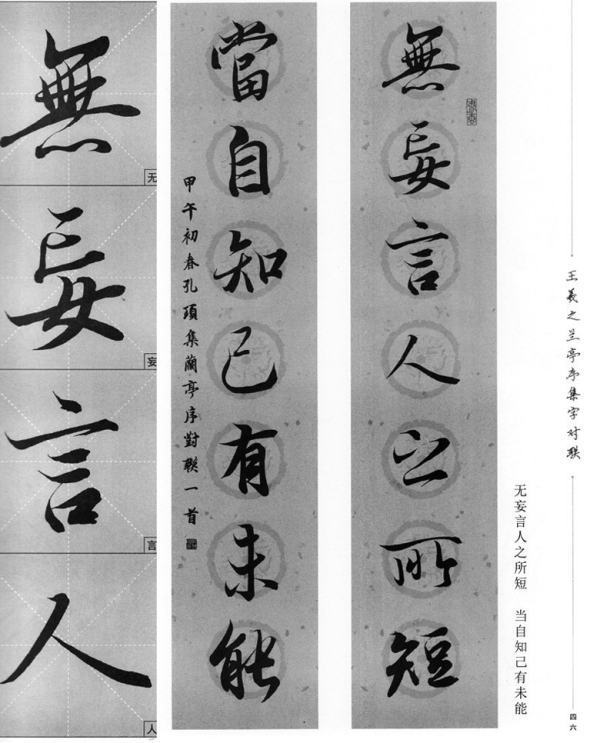 王羲之兰亭序集字对联
四六
无妄言人之所短 当自知己有未能
無妄言人之所短
當自知己有未能
甲午初春孔頊集蘭亭序對聯一首
無
无
妄
妄
言
言
人
人